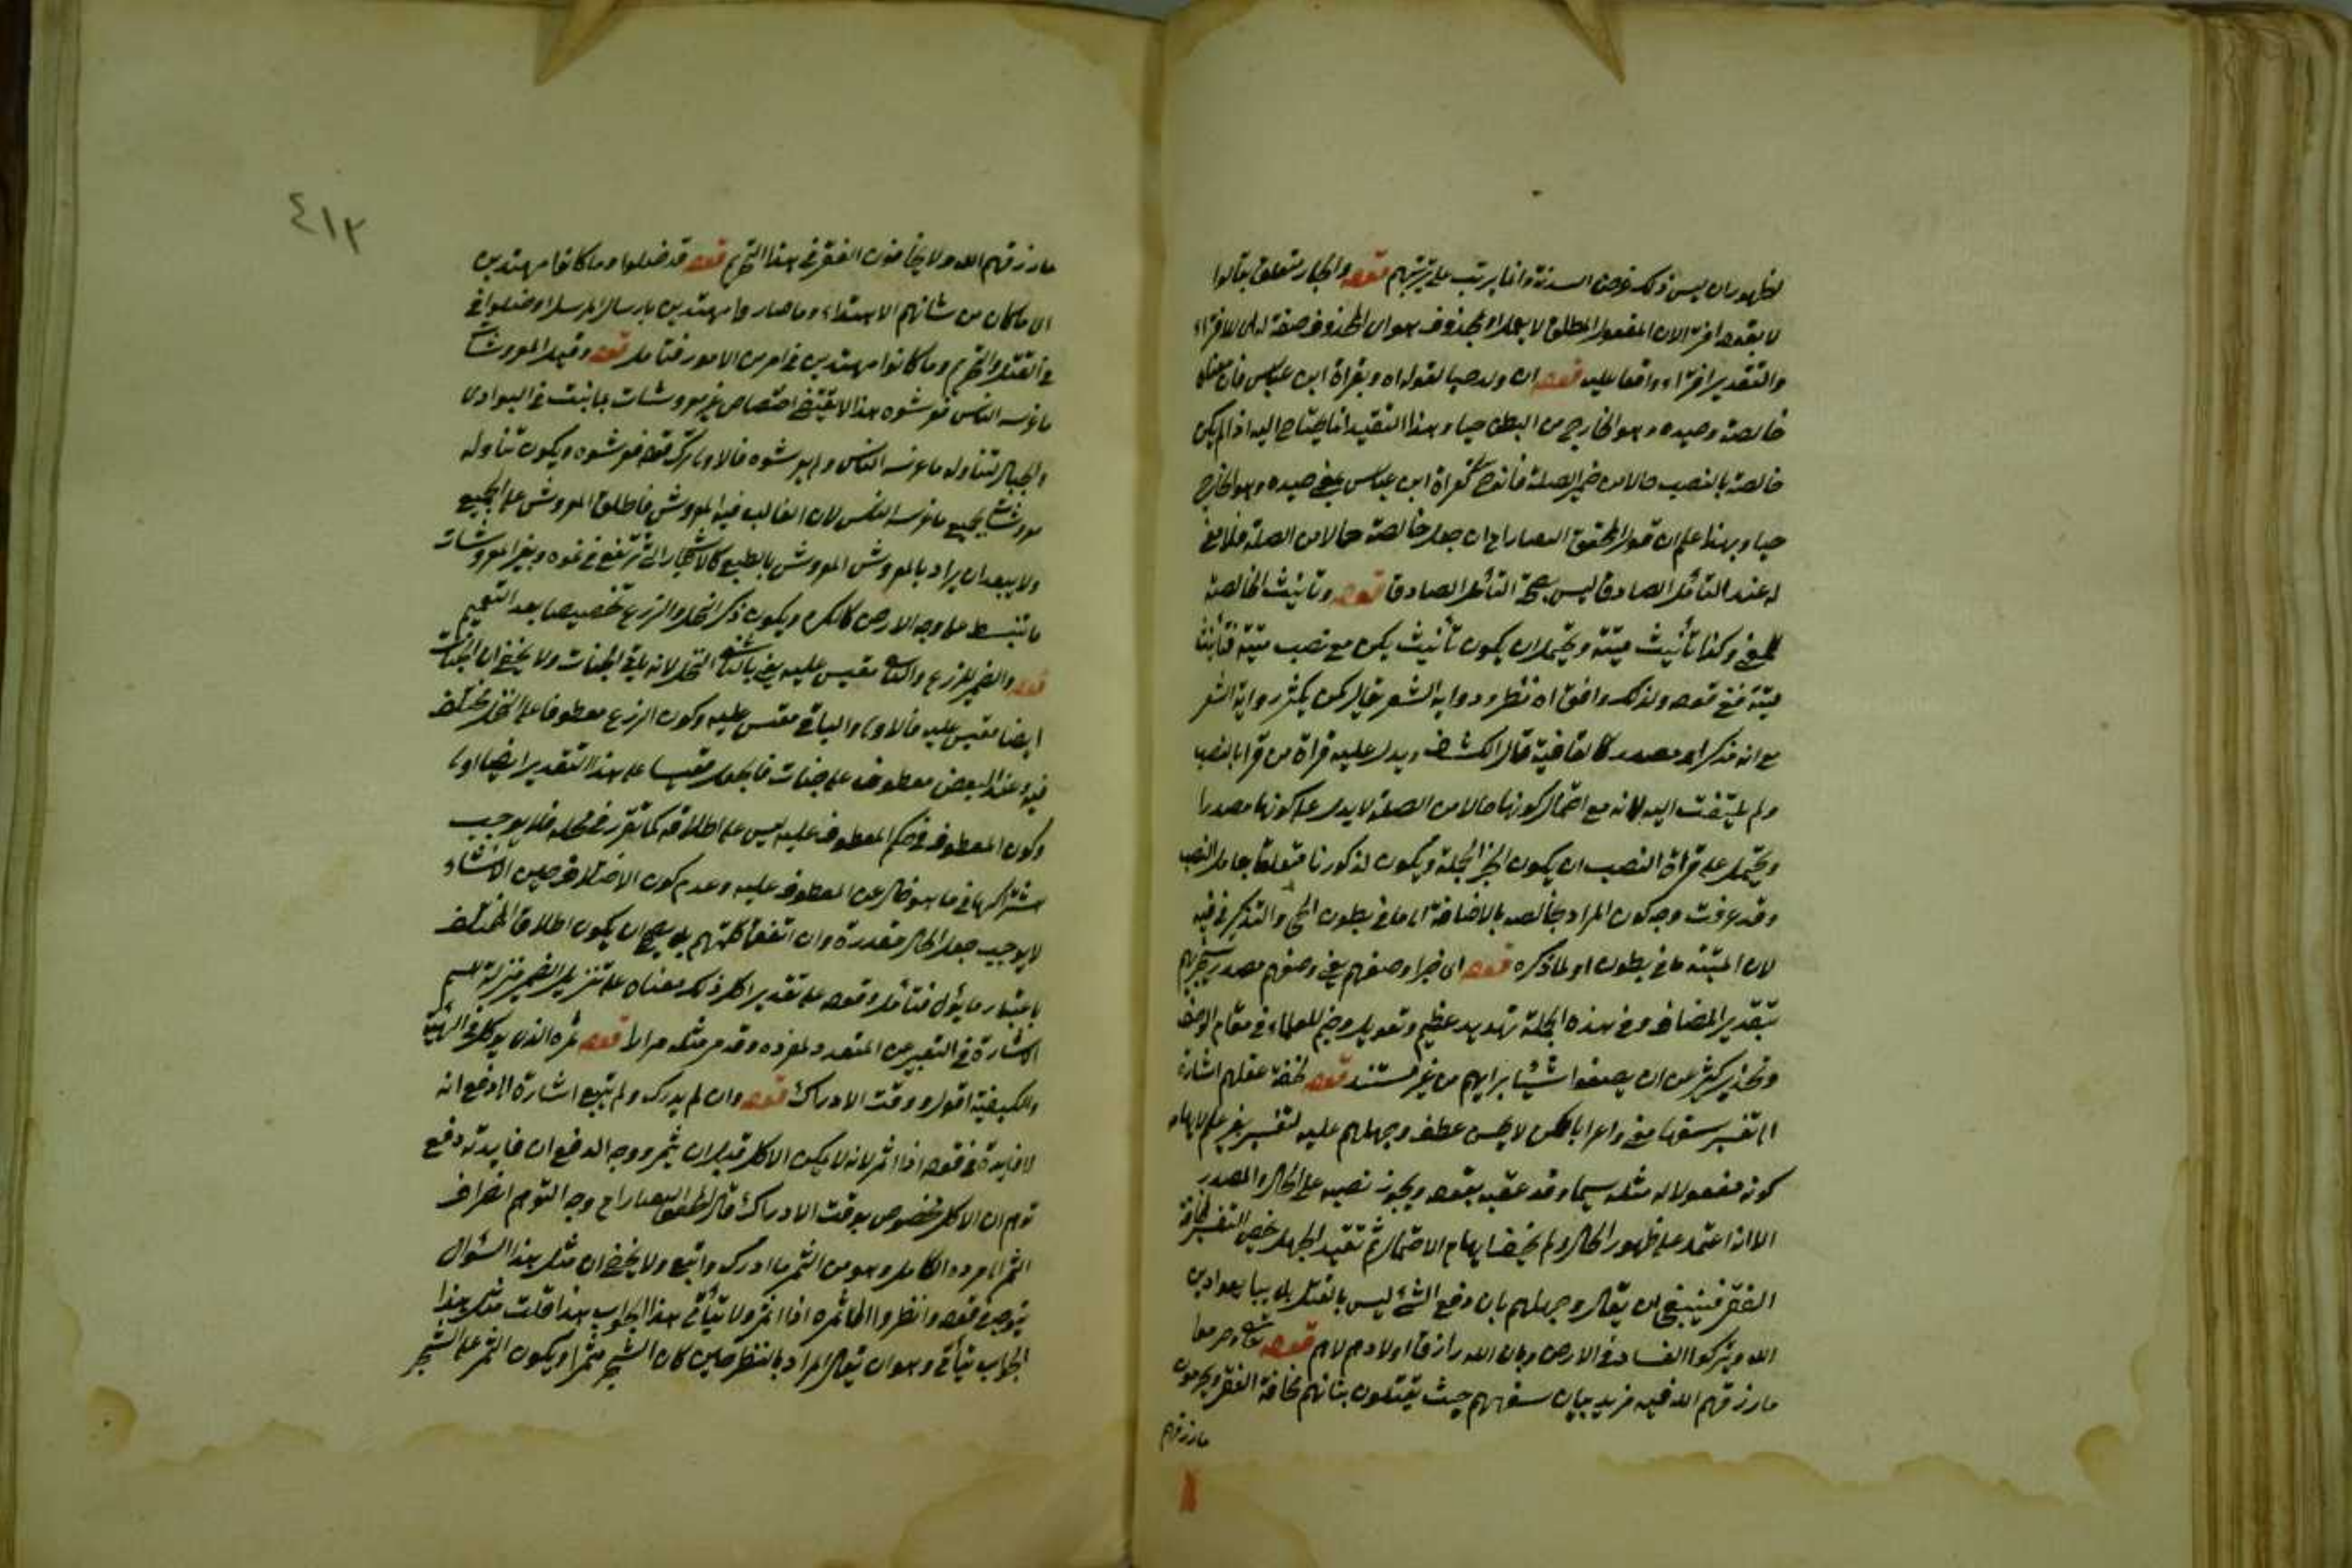 لظهور ان ليس ذلك غرض السدنة وانما يرتب على تزيينهم قوله والجار متعلق بقالوا
لا بقوله افتراء لان المفعول المطلق لا يعمل او بمحذوف هو اى المحذوف صفة له اى للافتراء
والتقدير افتراء واقعا عليه قوله ان ولد حيا لقوله اه وبقراة ابن عباس فان معناه
خالصة وحيده وهو الخارج من البطن حيا وهذا التقييد انما يحتاج اليه اذا لم يكن
خالصة بالنصب حالا من ضمير الصلة فانه ح كقراة ابن عباس بمعنى حيده وهو الخارج
حيا وبهذا علم ان قول المحقق التفتازاني ان جعل خالصة حالا من الصلة فلا معنى
له عند التأمل الصادق ليس بصحة التأمل الصادق قوله وتأنيث الخالصة
للمعنى وكذا تأنيث ميتة ويحتمل ان يكون تأنيث يكن مع نصب ميتة فتأنيث
ميتة فمع قوله ولذلك وافق اه نظر ورواية الشعر يقال لمن يكثر رواية الشعر
مع انه مذكر او مصدر كالعافية قال الكشاف ويدل عليه قراة من قرا بالنصب
ولم يلتفت اليه لانه مع احتمال كونها حالا من الصلة لا يدل على كونها مصدرا
ويحتمل على قراة النصب ان يكون الخبر الجملة ويكون لذكورنا متعلقا بعامل النصب
وقد عرفت وجه كون المراد بخالصه بالاضافة الى ما في بطون الحى والتذكير في فيه
لان الميتة ما في بطون او لما ذكره قوله اى جزاء وصفهم يعنى وصفهم مصدر سيجزيهم
بتقدير المضاف وفى هذه الجملة تهديد عظيم وتهويل وخيم للعلماء في مقام الوصف
وتحذير كثير عن ان يصفوا شيئا برايهم من غير مستند قوله لخفة عقلهم اشارة
الى تفسير سفها معنى واعرابا لكن لا يحسن عطف وجهلهم عليه لتفسير بغير علم لايهام
كونه مفعولا له مثله سيما وقد عقبه بقوله ويجوز نصبه على الحال والمصدر
الا انه اعتمد على ظهور الحال ولم يخف ايهام الاحتمال ثم تقييد الجهل خص التفسير لمخافة
الفقر فينبغى ان يقال وجهلهم بان دفع الشئ ليس بالقتل بل ببابعوادين
الله ويتركوا الفساد في الارض وبان الله رازق اولادهم لا هم قوله تعالى وحرموا
ما رزقهم الله فيه مزيد بيان سفههم حيث يقتلون بناتهم مخافة الفقر ويحرمون
ما رزقهم
٤١٢
ما رزقهم الله ولا يخافون الفقر في هذا التحريم قوله قد ضلوا وما كانوا مهتدين
اى ما كان من شانهم الاهتداء وما صاروا مهتدين بارسال الرسل او ضلوا في
في القتل والتحريم وما كانوا مهتدين في امر من الامور فتامل قوله وقيل المعروشات
ما غرسه الناس فعرشوه هذا لا يقتضى اختصاص غير معروشات بما نبت في البوادى
والجبال لتناوله ما غرسه الناس ولم يعرشوه فالاولى ترك قوله فعرشوه ويكون تناوله
معروشات لجميع ما غرسه الناس لان الغالب فيه المعروش فاطلق المعروش على الجميع
ولا يبعد ان يراد بالمعروش المعروش بالطبع كالاشجار التى ترتفع في نموه وبغير المعروشات
ما ينبسط على وجه الارض كالكرم ويكون ذكر النخل والزرع تخصيصا بعد التعميم
قوله والضمير للزرع والباقي مقيس عليه يعنى بالباقي النخل لانه باقى الجنات ولا يخفى ان الجنات
ايضا مقيس عليه فالاولى والباقي مقيس عليه وكون الزرع معطوفا على النخل مختلف
فيه وعند البعض معطوف على جنات فايجعل مقيسا على هذا التقدير ايضا اولى
وكون المعطوف في حكم المعطوف عليه ليس على اطلاقه كما تقرر في محله فلا يوجب
اشتراكهما في ما هو خال عن المعطوف عليه وعدم كون الاختلاف حين الانشاء
لا يوجب جعل الحال مقدرة وان اتفق كلمتهم بل يصح ان يكون اطلاق المختلف
باعتبار ما يؤل فتأمل وقوله على تقدير اكل ذلك معناه على تنزيل الضمير منزلة اسم
الاشارة في التعبير عن المتعدد بمفرده وقد مر مثله مرارا قوله ثمره الذى يؤكل في الهيئة
والكيفية اقول ووقت الادراك قوله وان لم يدرك ولم يتبع اشارة الى دفع انه
لا فايدة في قوله اذا اثمر لانه لا يمكن الاكل قبل ان يثمر ووجه الدفع ان فايدته دفع
توهم ان الاكل مخصوص بوقت الادراك قال المحقق التفتازاني وجه التوهم انصراف
الثمر الى فرده الكامل وهو من الثمر ما ادرك واينع ولا يخفى ان مثل هذا السؤال
يتوجه في قوله وانظروا الى ثمره اذا اثمر ولا يتأتى هذا الجواب هذا قلت مثل هذا
الجواب يتأتى وهو ان يقال المراد بالنظر حين كان الشجر مثمرا ويكون الثمر على الشجر